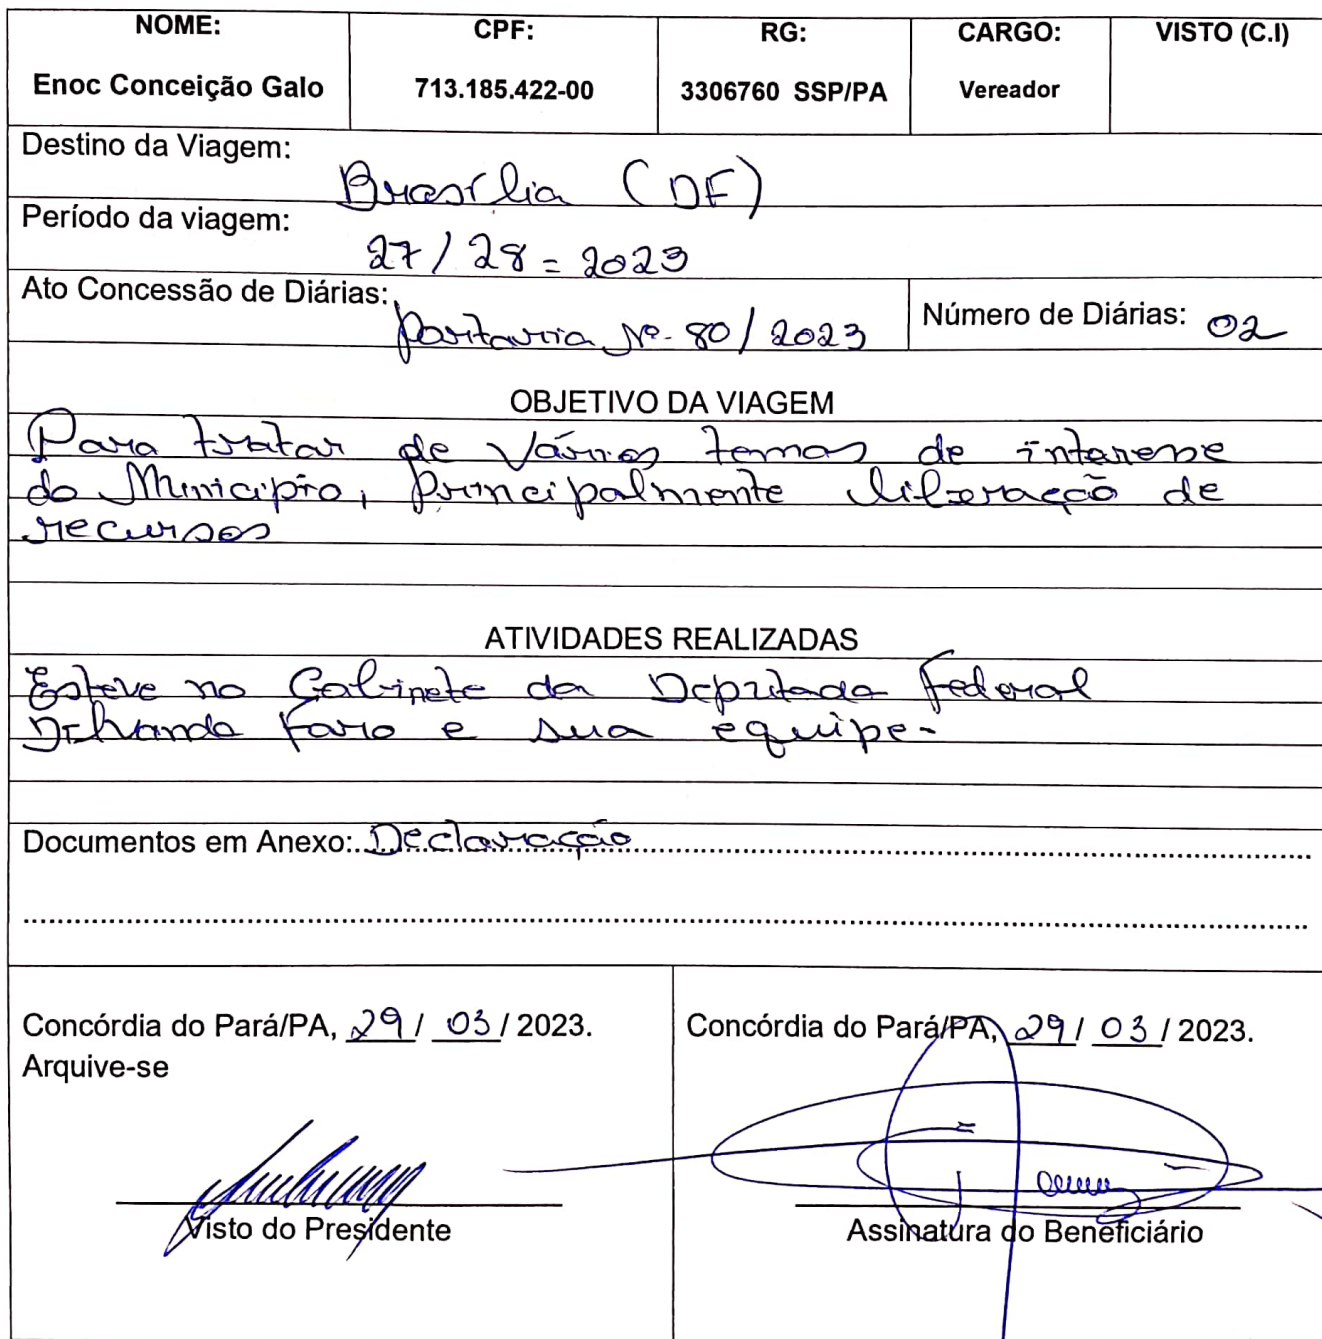 NOME: CPF: RG: CARGO: VISTO (C.I)
Enoc Conceição Galo 713.185.422-00 3306760 SSP/PA Vereador
Destino da Viagem: Brasília (DF)
Período da viagem: 27/28=2023
Ato Concessão de Diárias: portaria Nº-80/2023 Número de Diárias: 02
OBJETIVO DA VIAGEM
Para tratar de Vários temas de interesse
do Município, principalmente liberação de
recursos
ATIVIDADES REALIZADAS
Esteve no Gabinete da Deputada Federal
Dilvanda Faro e sua equipe-
Documentos em Anexo: Declaração
Concórdia do Pará/PA, 29/ 03/ 2023. Concórdia do Pará/PA, 29/ 03/ 2023.
Arquive-se
Visto do Presidente Assinatura do Beneficiário